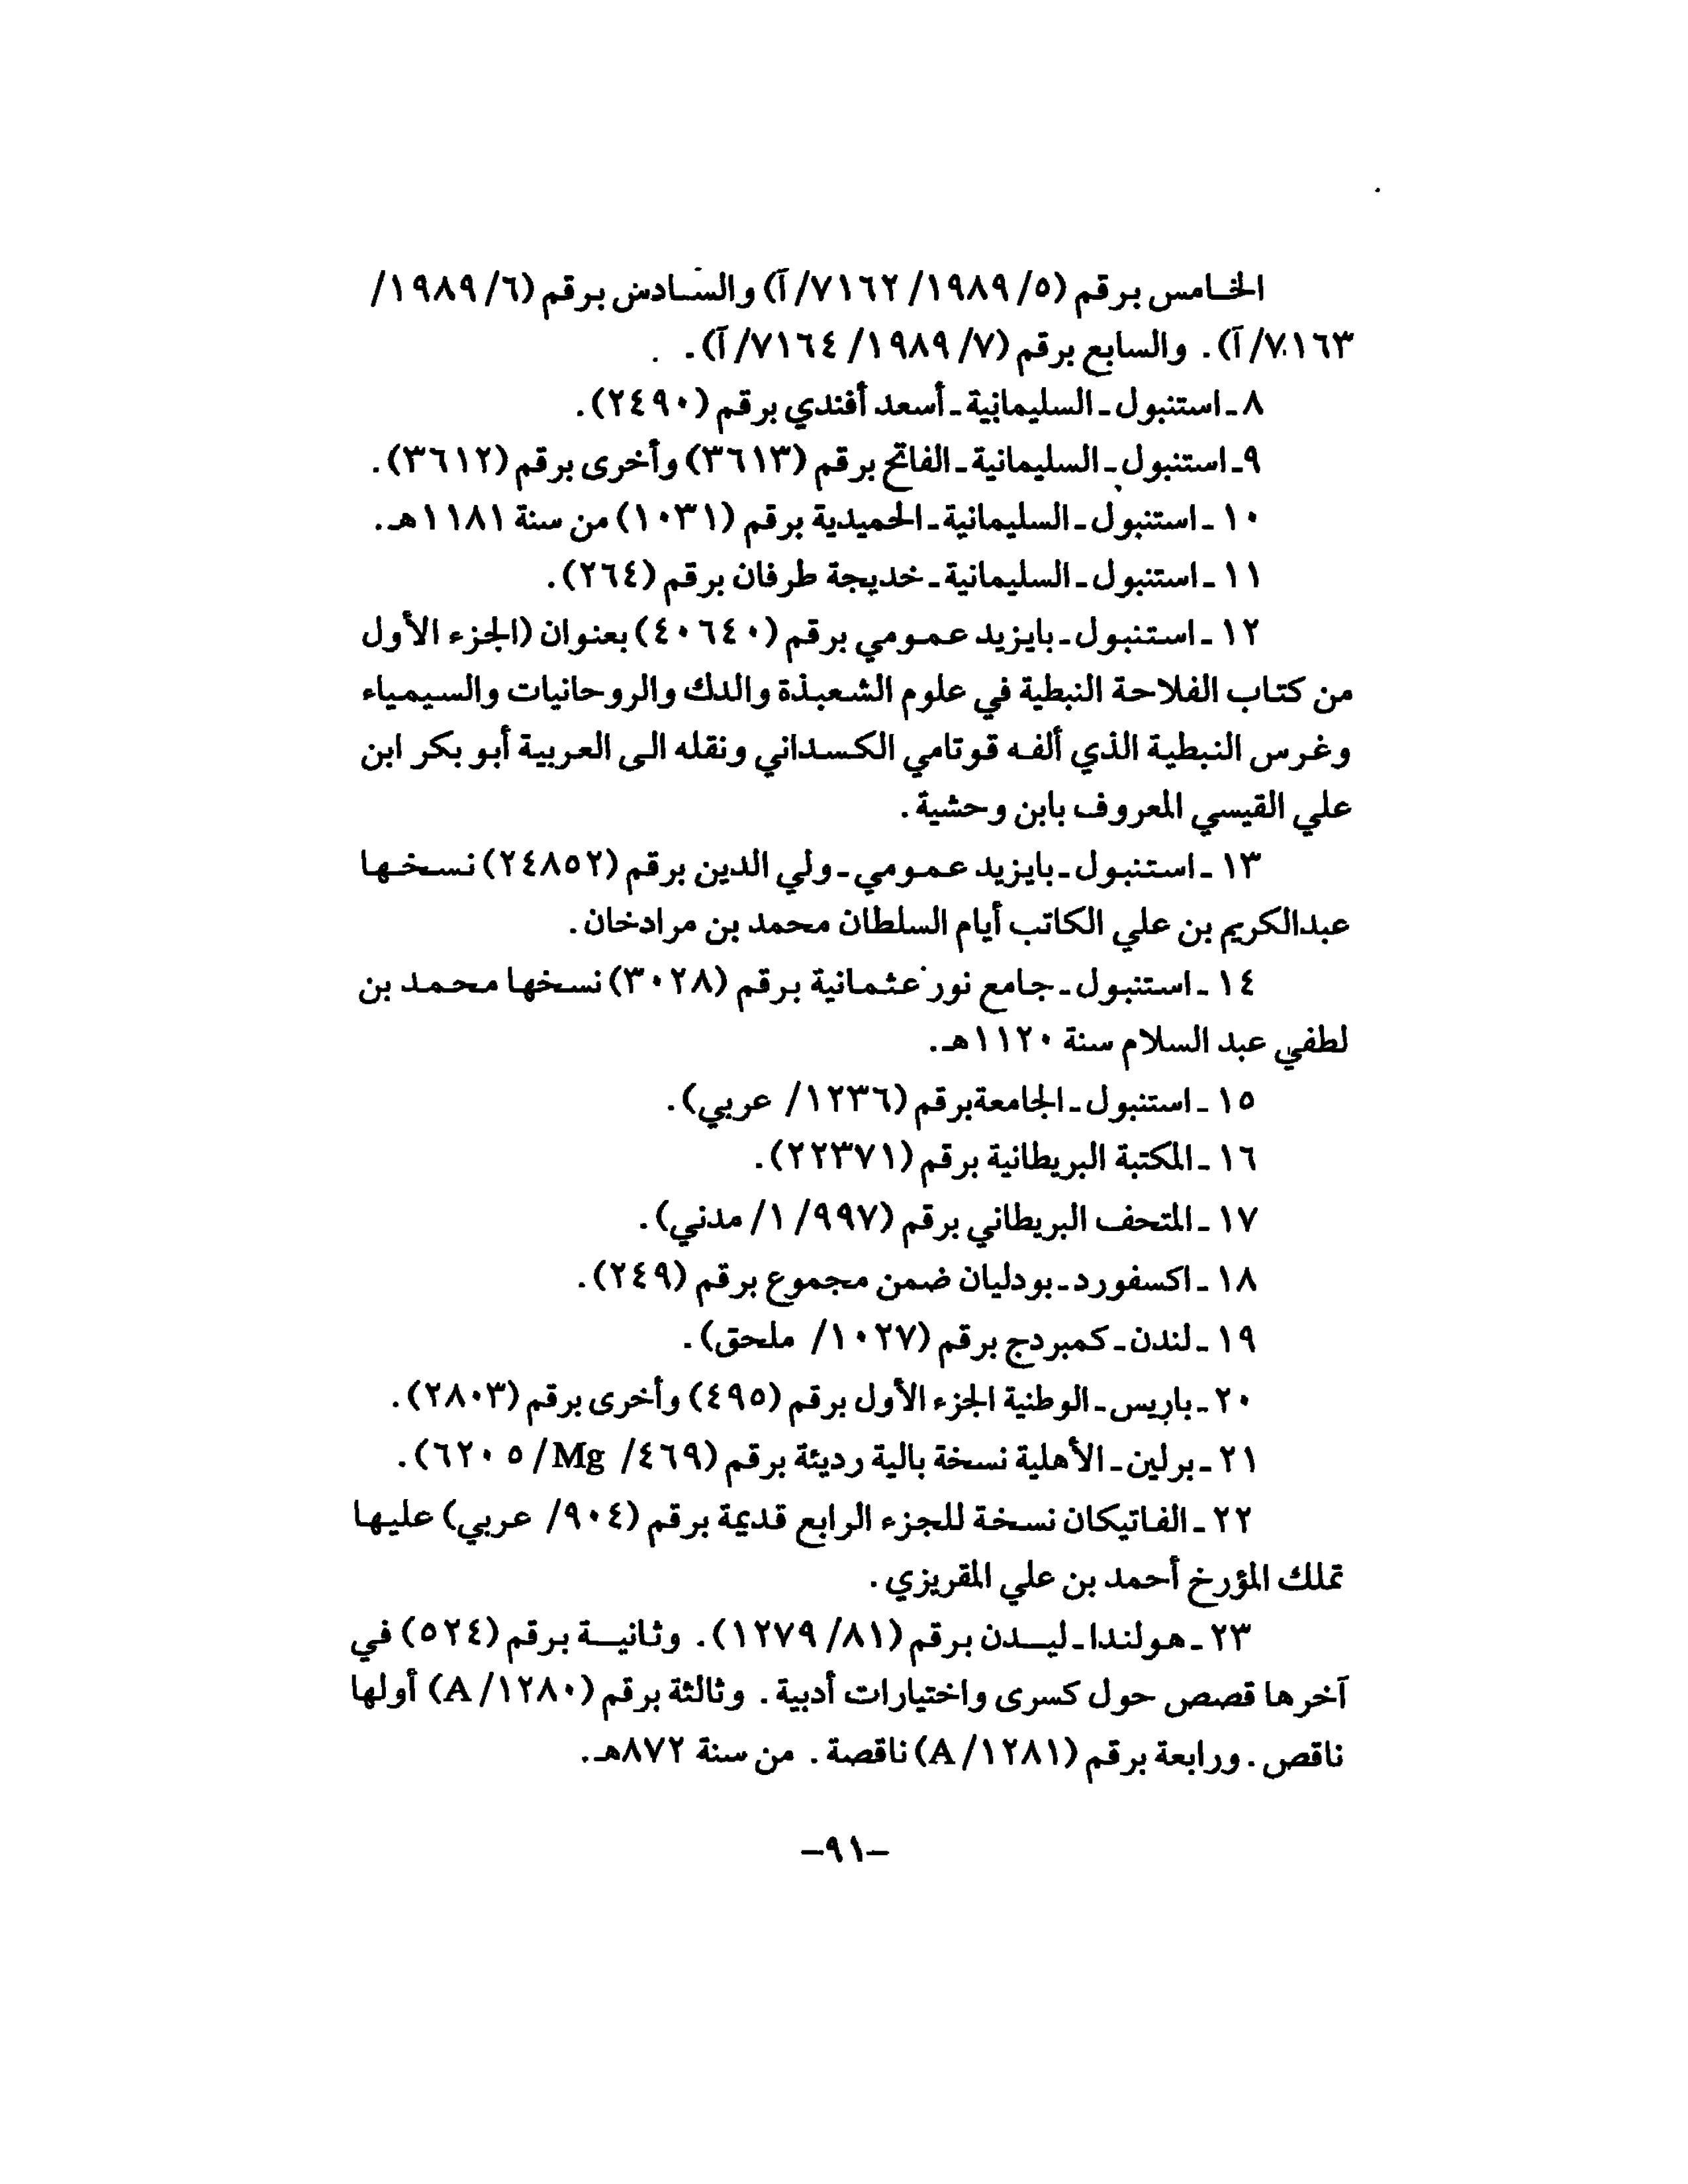 الخامس برقم (٥/ ١٩٨٩/ ٧١٦٢/ آ) والسادس برقم (٦/ ١٩٨٩/
٧١٦٣/ آ). والسابع برقم (٧/ ١٩٨٩/ ٧١٦٤/ آ).
٨ ـ استنبول ـ السليمانية ـ أسعد أفندي برقم (٢٤٩٠).
٩ـ استنبول ـ السليمانية ـ الفاتح برقم (٣٦١٣) وأخرى برقم (٣٦١٢).
١٠ ـ استنبول ـ السليمانية ـ الحميدية برقم (١٠٣١) من سنة ١١٨١هـ.
١١ ـ استنبول ـ السليمانية ـ خديجة طرفان برقم (٢٦٤).
١٢ ـ استنبول ـ بايزيد عمومي برقم (٤٠٦٤٠) بعنوان (الجزء الأول
من كتاب الفلاحة النبطية في علوم الشعبذة والدك والروحانيات والسيمياء
وغرس النبطية الذي ألفه قوتامي الكسداني ونقله الى العربية أبو بكر ابن
علي القيسي المعروف بابن وحشية.
١٣ ـ استنبول ـ بايزيد عمومي ـ ولي الدين برقم (٢٤٨٥٢) نسخها
عبدالكريم بن علي الكاتب أيام السلطان محمد بن مرادخان.
١٤ ـ استنبول ـ جامع نور عثمانية برقم (٣٠٢٨) نسخها محمد بن
لطفي عبد السلام سنة ١١٢٠هـ.
١٥ ـ استنبول ـ الجامعةبرقم (١٢٣٦/ عربي).
١٦ ـ المكتبة البريطانية برقم (٢٢٣٧١).
١٧ ـ المتحف البريطاني برقم (٩٩٧/ ١/ مدني).
١٨ ـ اكسفورد ـ بودليان ضمن مجموع برقم (٢٤٩).
١٩ ـ لندن ـ كمبردج برقم (١٠٢٧/ ملحق).
٢٠ ـ باريس ـ الوطنية الجزء الأول برقم (٤٩٥) وأخرى برقم (٢٨٠٣).
٢١ ـ برلين ـ الأهلية نسخة بالية رديئة برقم (٤٦٩/ Mg/ ٦٢٠٥).
٢٢ ـ الفاتيكان نسخة للجزء الرابع قديمة برقم (٩٠٤/ عربي) عليها
تملك المؤرخ أحمد بن علي المقريزي.
٢٣ ـ هولندا ـ ليدن برقم (٨١/ ١٢٧٩). وثانية برقم (٥٢٤) في
آخرها قصص حول كسرى واختيارات أدبية. وثالثة برقم (١٢٨٠/ A) أولها
ناقص. ورابعة برقم (١٢٨١/ A) ناقصة. من سنة ٨٧٢هـ.
–٩١–